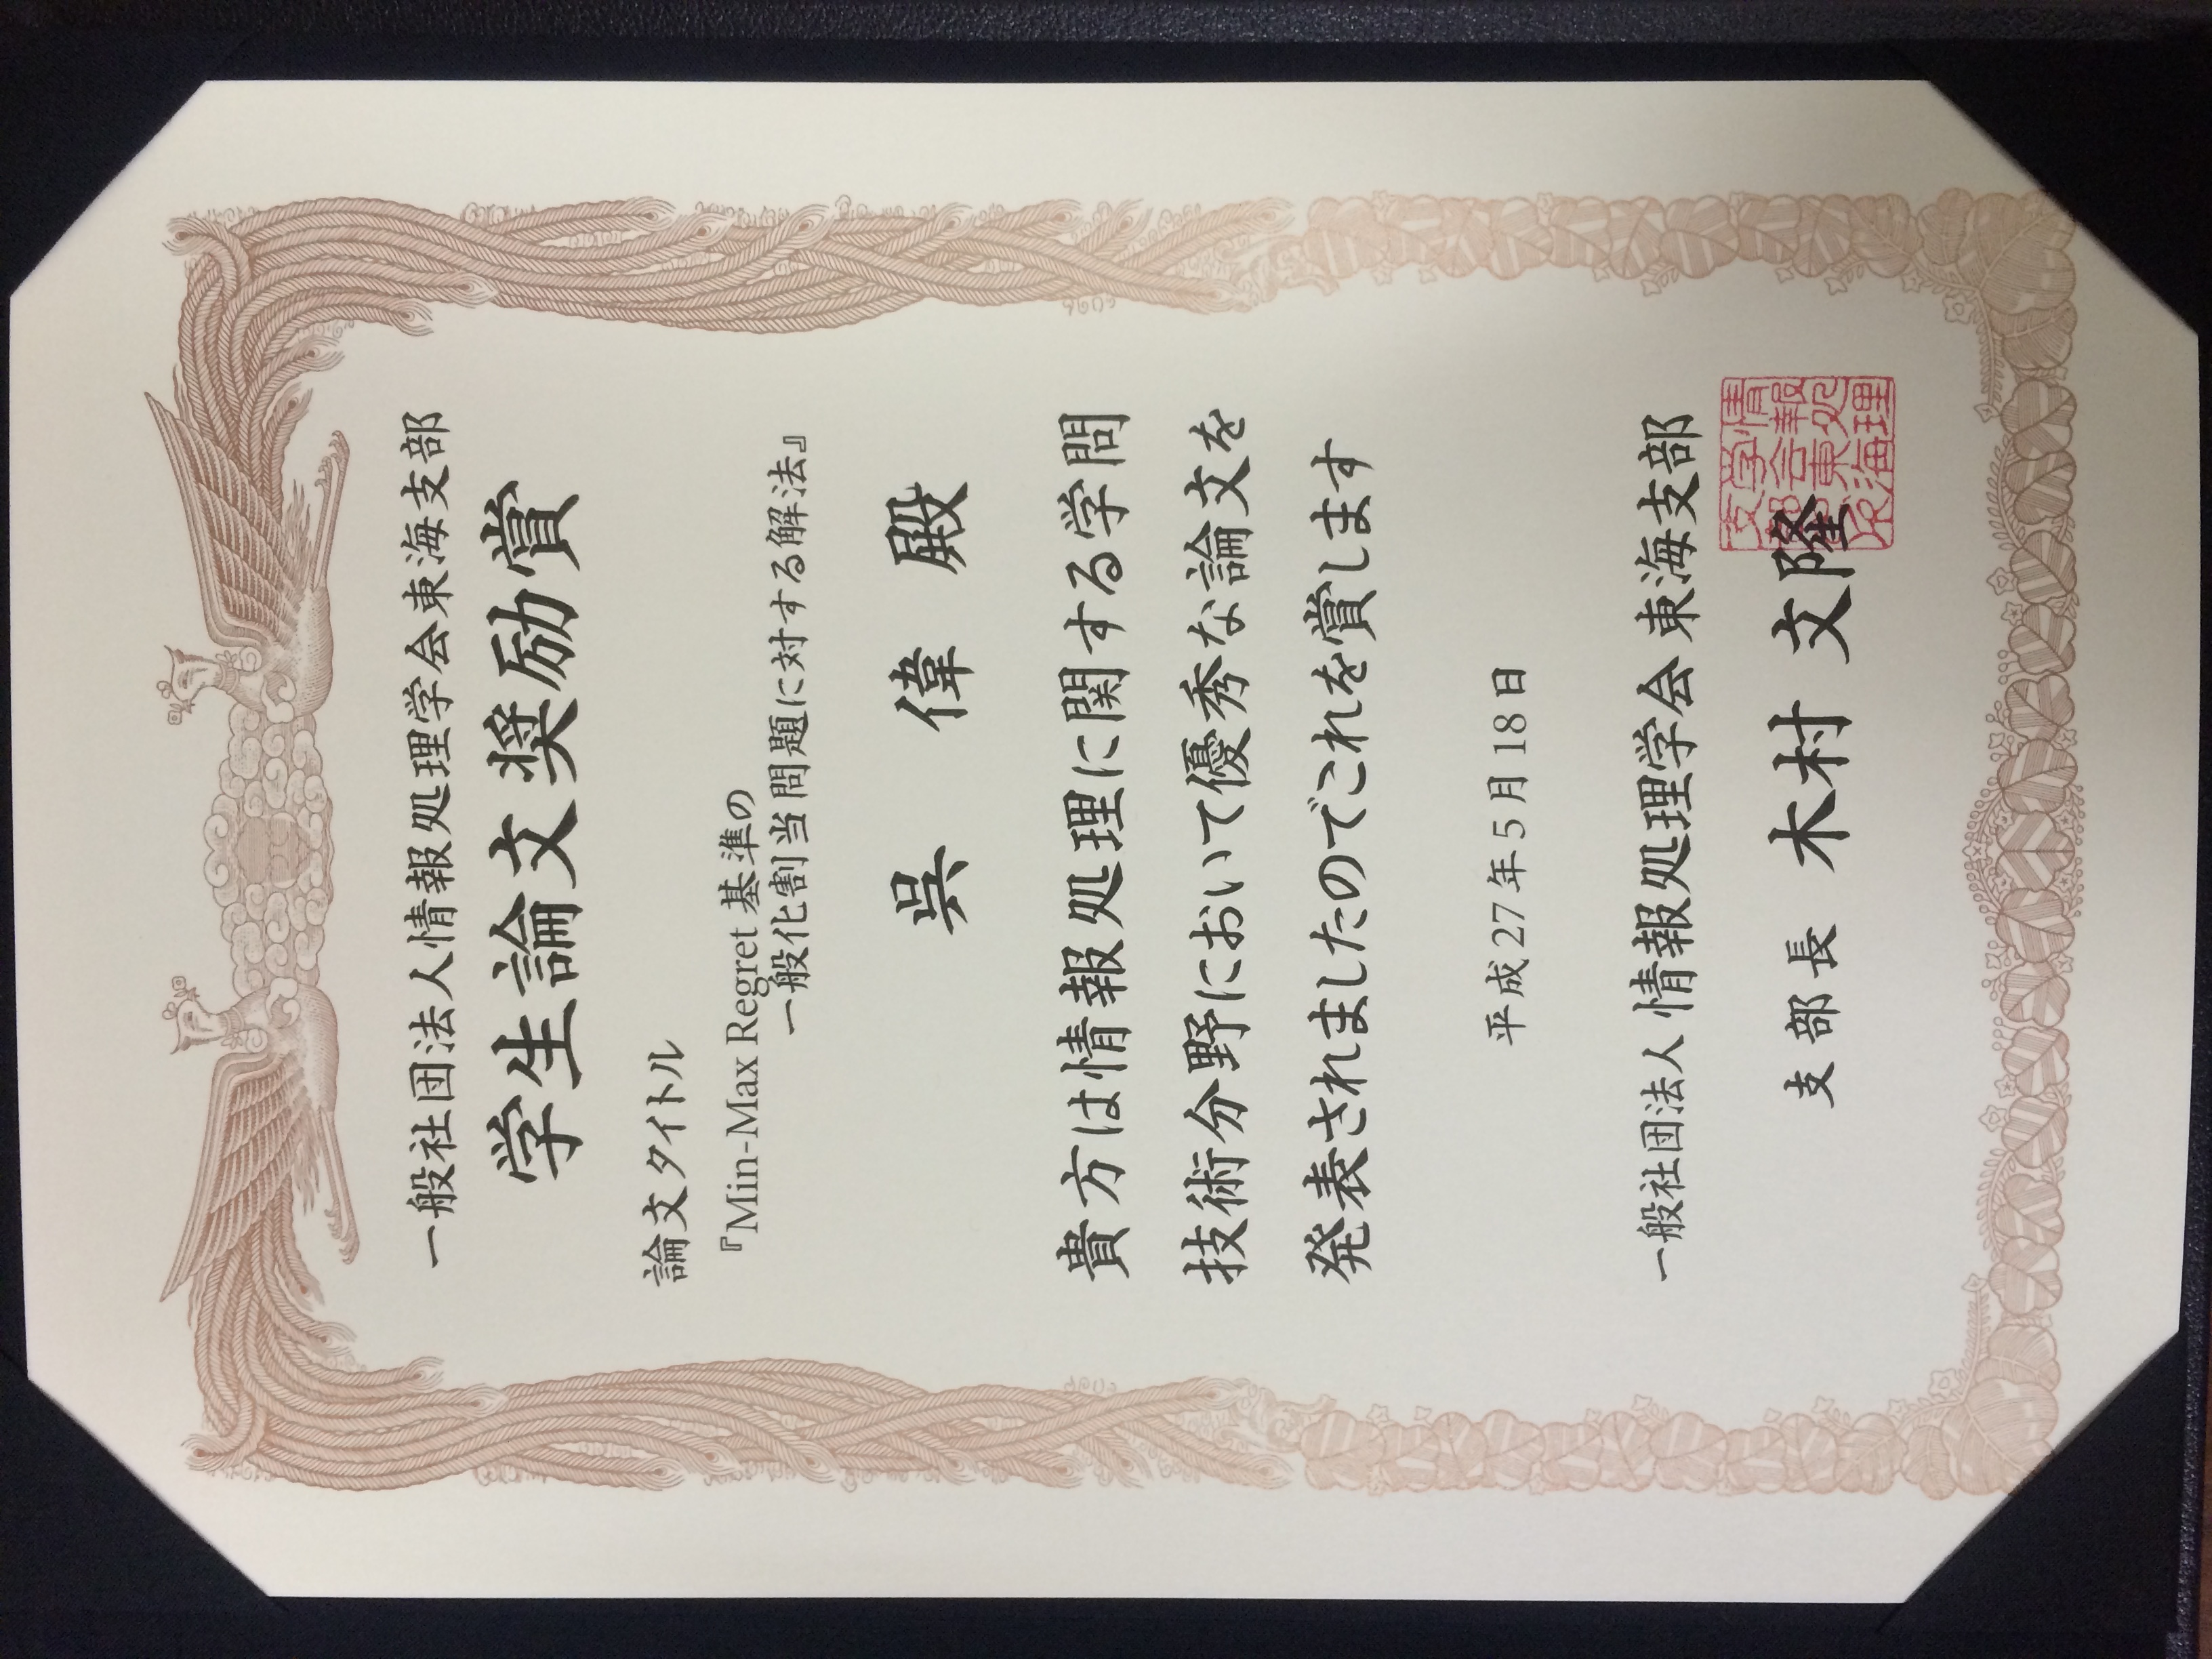 一般社団法人情報処理学会東海支部
学生論文奨励賞
論文タイトル
『Min-Max Regret 基準の
一般化割当問題に対する解法』
呉 偉 殿
貴方は情報処理に関する学問
技術分野において優秀な論文を
発表されましたのでこれを賞します
平成27年5月18日
一般社団法人 情報処理学会 東海支部
支部長 木村 文隆